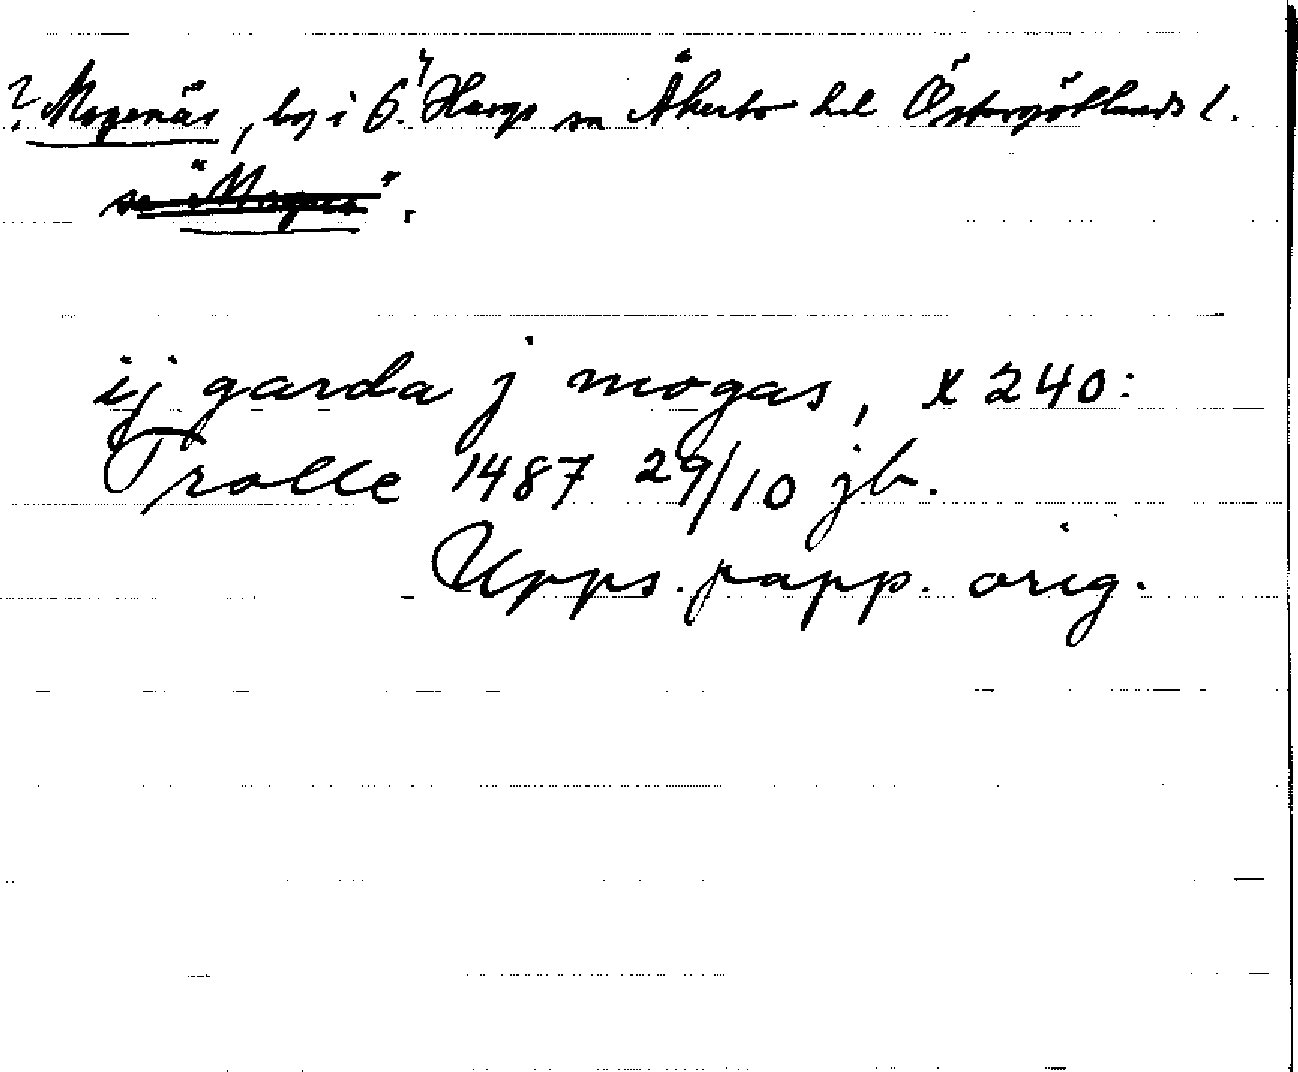 ? Mogenäs, by i Ö. Hargs sn Åkerbo hd Östergötlands l.
se "Mogas".
ij garda j mogas, x 240:
Trolle 1487 29/10 jb.
Upps. papp. orig.